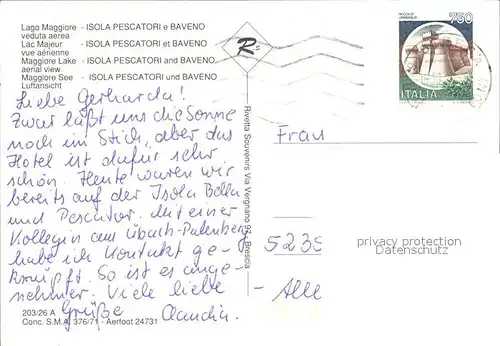 Lago Maggiore - ISOLA PESCATORI e BAVENO
veduta aerea
Lac Majeur - ISOLA PESCATORI et BAVENO
vue aérienne
Maggiore Lake - ISOLA PESCATORI and BAVENO
aerial view
Maggiore See - ISOLA PESCATORI und BAVENO
Luftansicht
Liebe Gerharda!
Zwar läßt uns die Sonne
noch im Stich, aber das
Hotel ist dafür sehr
schön. Heute waren wir
bereits auf der Isola Bella
und Pescatori. Mit einer
Kollegin aus Übach-Palenberg
habe ich Kontakt ge-
knüpft. So ist es ange-
nehmer. Viele liebe
Grüße Claudia.
203/26 A
Conc. S.M.A. 376/71 - Aerfoot 24731
Rivetta Souvenirs Via Vergnano 97 - Brescia
R
750
ITALIA
Frau
5239
privacy protection
Datenschutz